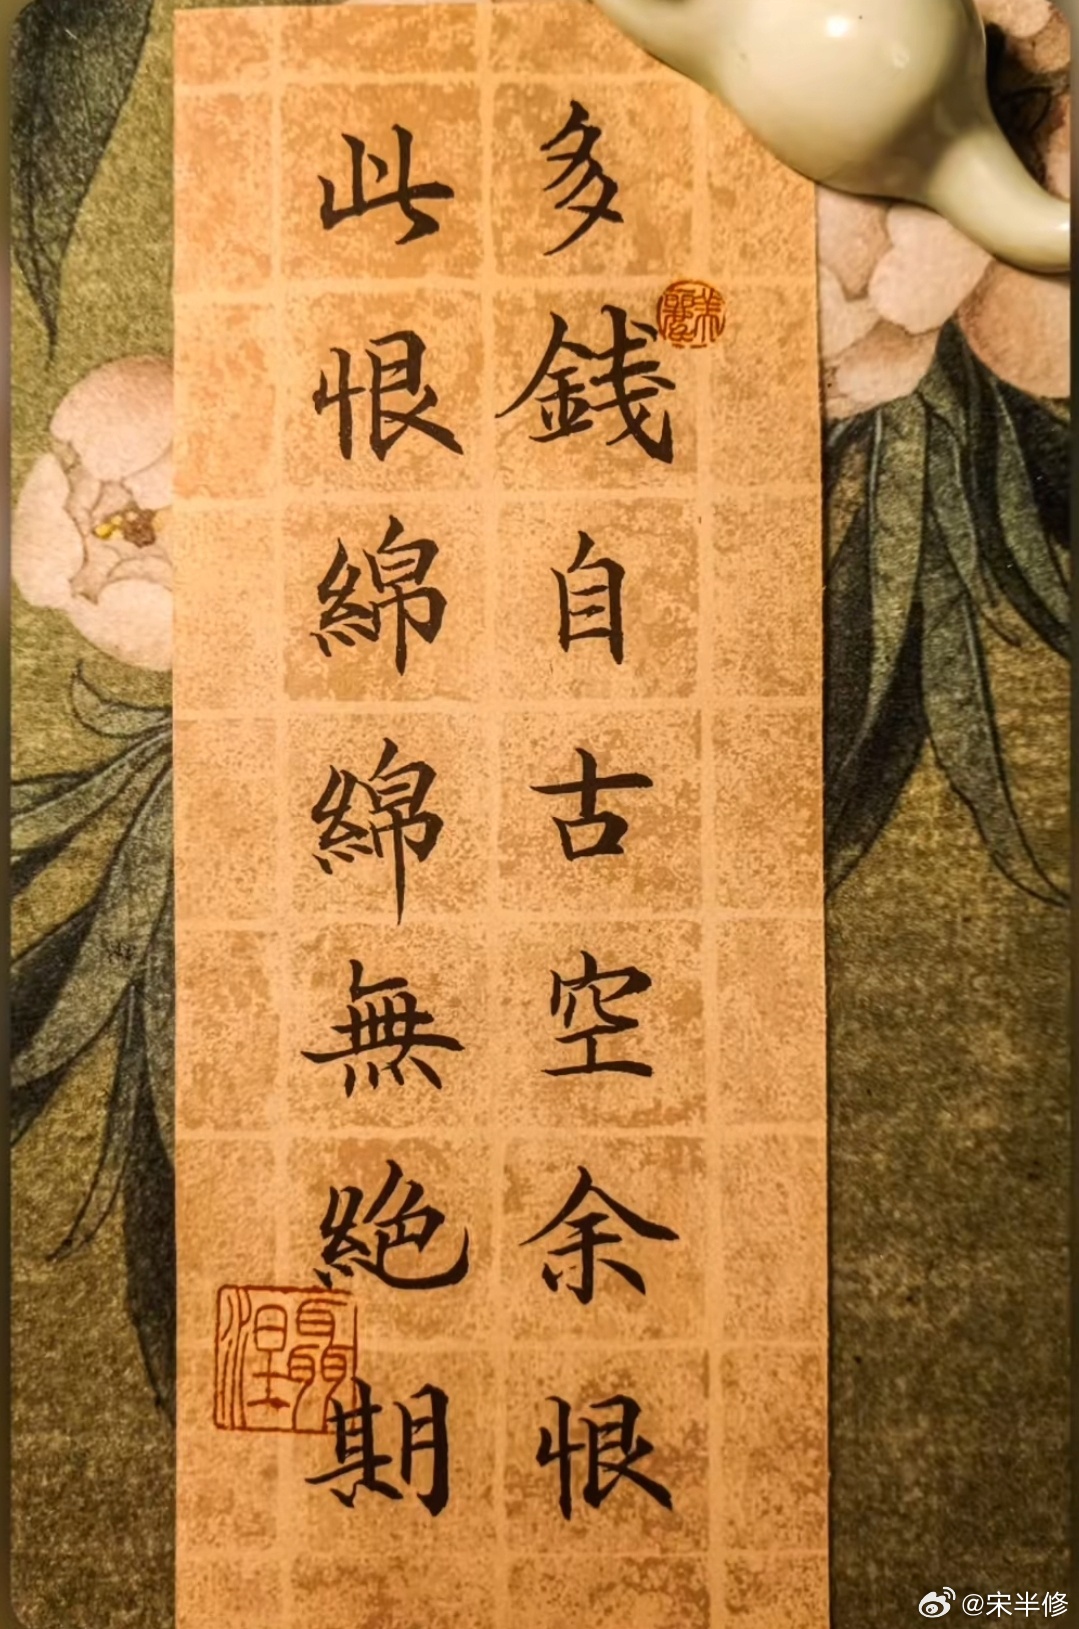 多銭自古空余恨
此恨綿綿無絶期
@宋半修